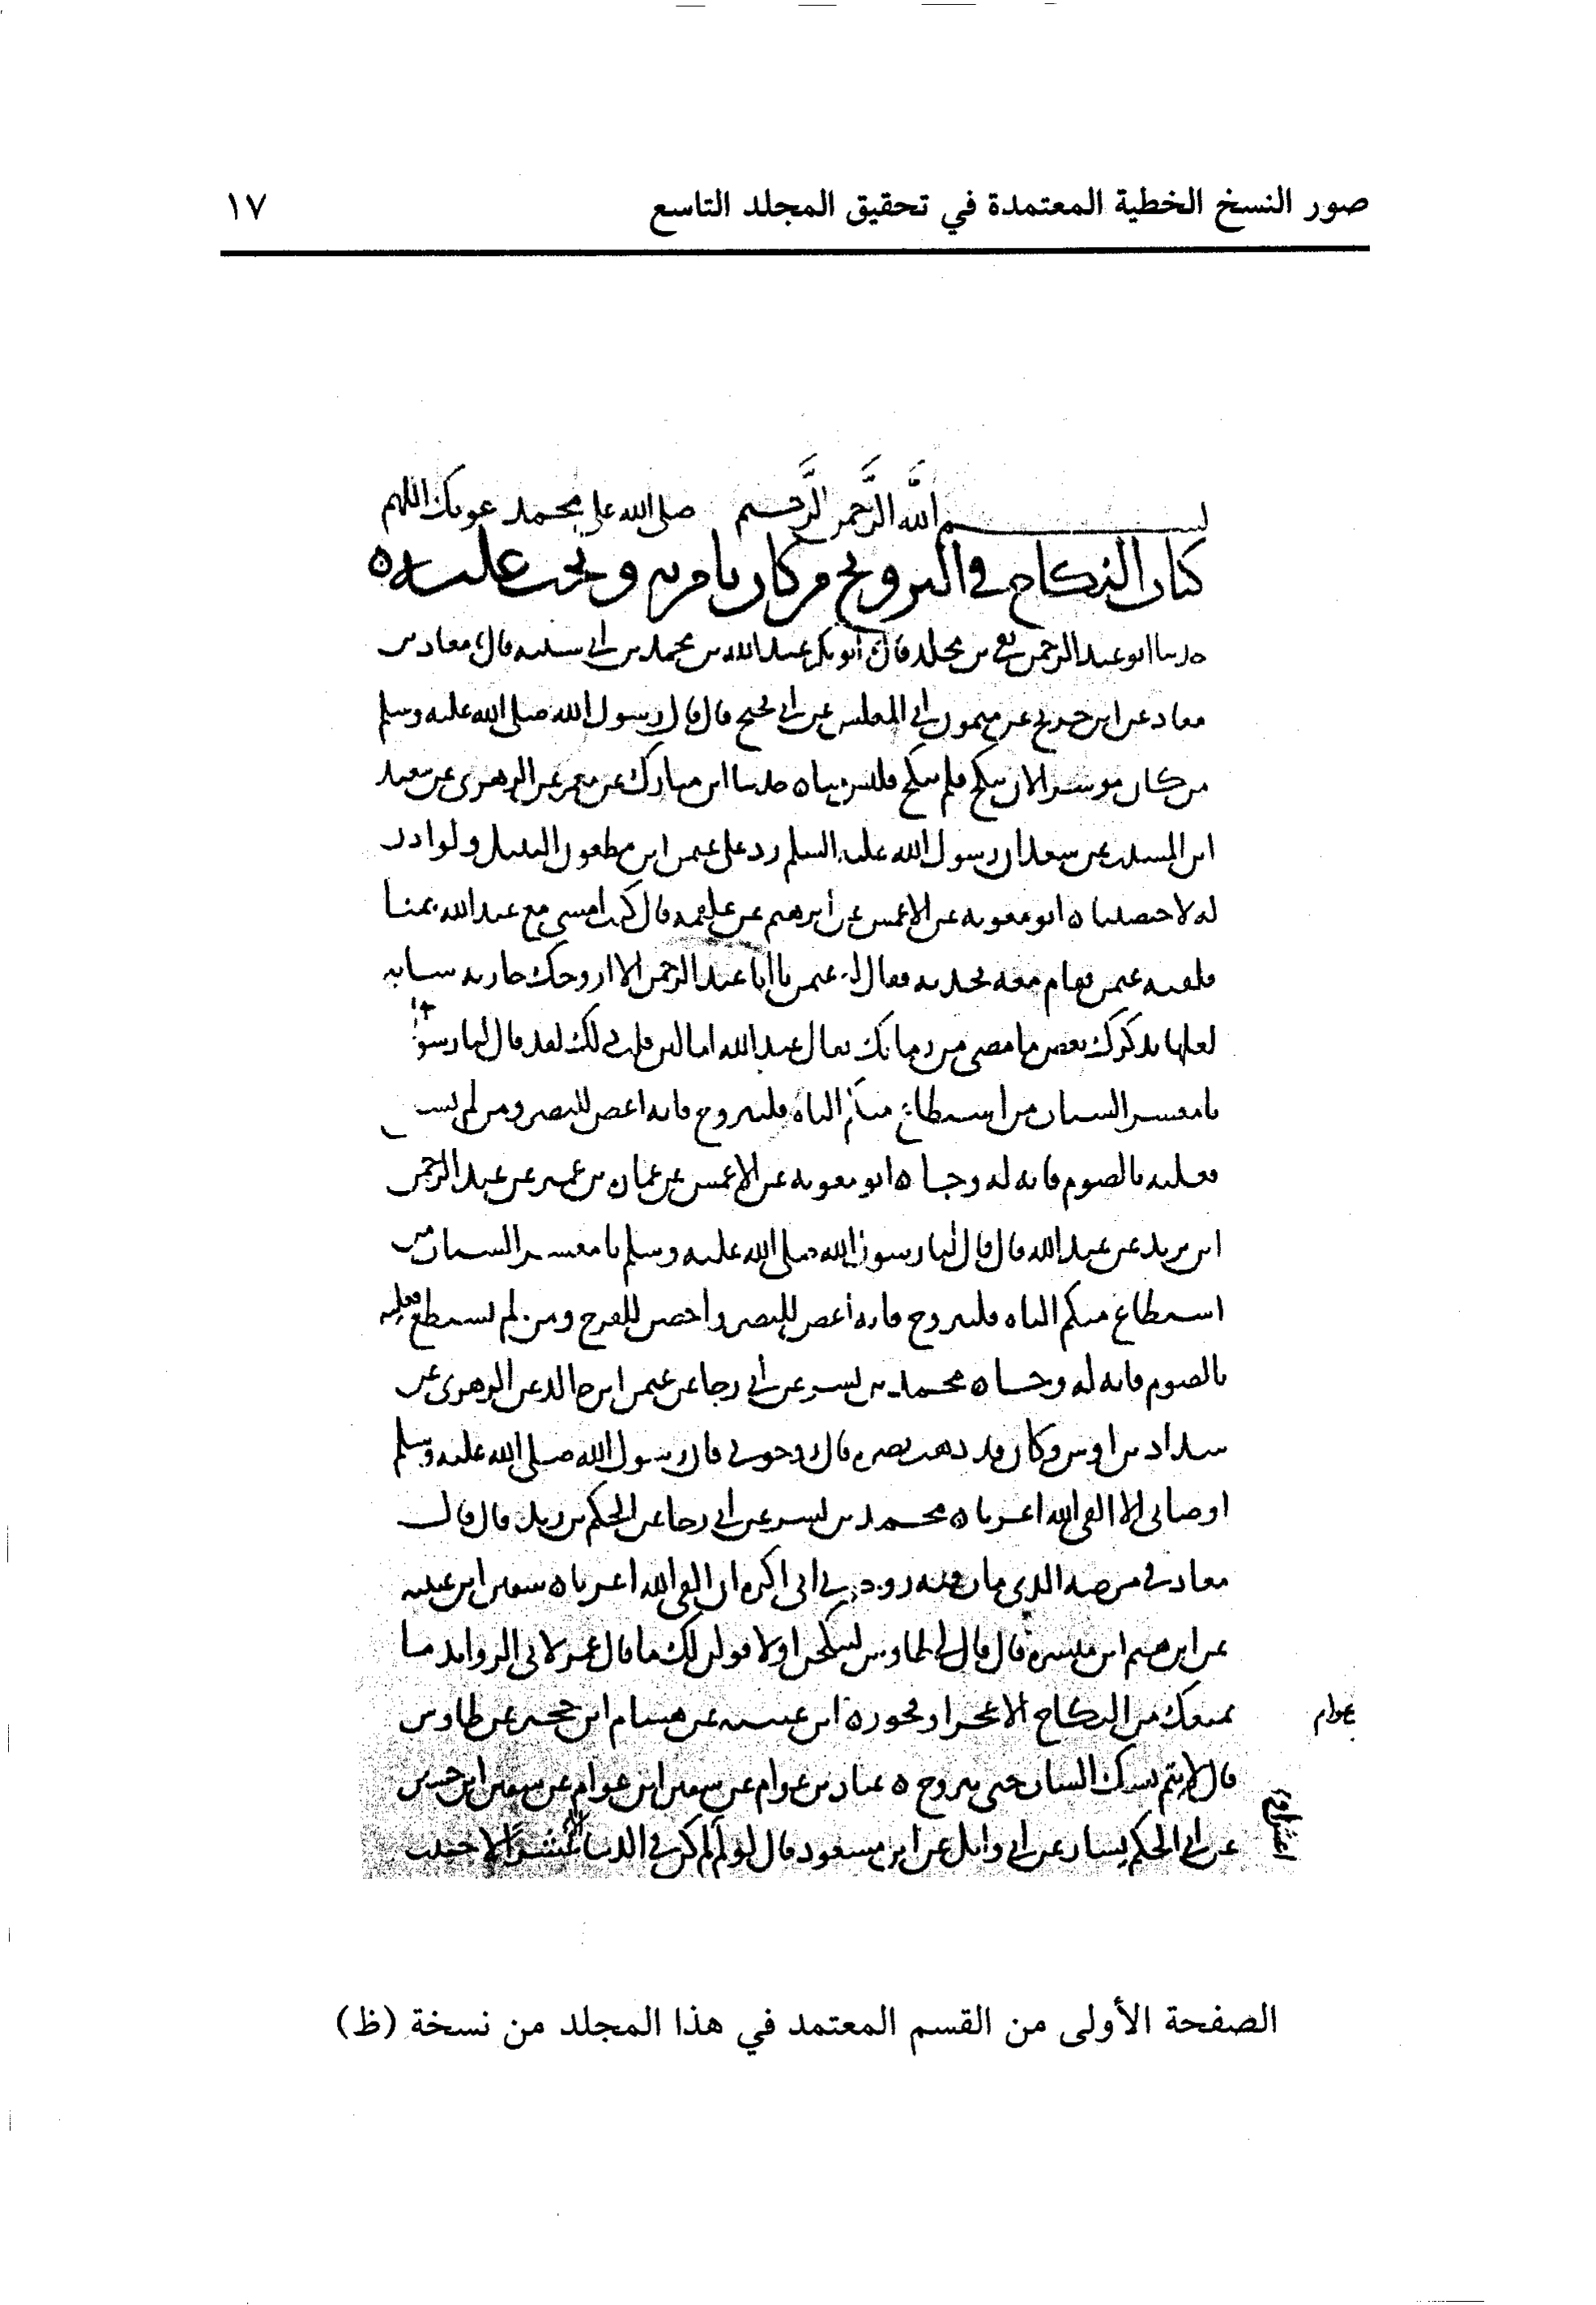 صور النسخ الخطية المعتمدة في تحقيق المجلد التاسع ١٧
بسم الله الرحمن الرحيم صلى الله على محمد عونك اللهم
كتاب النكاح في التزويج من كان يأمر به ويحث عليه ه
حدثنا ابو عبد الرحمن بقي بن مخلد قال أبو بكر عبد الله بن محمد بن أبي شيبة قال معاذ بن
معاذ عن ابن جريج عن ميمون أبي المغلس عن أبي نجيح قال قال رسول الله صلى الله عليه وسلم
من كان موسرا لان ينكح فلم ينكح فليس منا ه حدثنا ابن مبارك عن معمر عن الزهري عن سعيد
ابن المسيب عن سعد ان رسول الله عليه السلم رد على عثمن ابن مظعون التبتل ولو اذن
له لاختصينا ه ابو معوية عن الاعمش عن أبرهيم عن علقمة قال كنت امشي مع عبد الله بمنا
فلقيه عثمن فقام معه يحدثه فقال له عثمن يا أبا عبد الرحمن الا ازوجك جارية شابة
لعلها تذكرك بعض ما مضى من زمانك فقال عبد الله اما لئن قلت ذلك لقد قال لنا رسول
يا معشر الشباب من استطاع منكم الباه فليتزوج فانه اغض للبصر ومن لم يستطع
فعليه بالصوم فانه له وجا ه ابو معوية عن الاعمش عن عمارة بن عمير عن عبد الرحمن
ابن يزيد عن عبد الله قال قال لنا رسول الله صلى الله عليه وسلم يا معشر الشباب من
استطاع منكم الباه فليتزوج فانه أغض للبصر واحصن للفرج ومن لم يستطع فعليه
بالصوم فانه له وجا ه محمد بن بشر عن أبي رجا عن عثمن ابن خالد عن الزهري عن
شداد بن اوس وكان قد ذهب بصره قال زوجوني فان رسول الله صلى الله عليه وسلم
اوصاني الا القى الله اعزبا ه محمد بن بشر عن أبي رجا عن الحكم بن زيد قال قال
معاذ في مرضه الذي مات فيه زوجوني اني اكره ان القى الله اعزبا ه سفين ابن عيينه
عن ابرهيم ابن ميسرة قال قال لي طاوس لتنكحن او لاقولن لك ما قال عمر لابي الزوايد ما
يمنعك من النكاح الا عجز او فجور ه ابن عيينه عن هشام ابن حجير عن طاوس
عوام
قال لا يتم نسك الشاب حتى يتزوج ه عباد بن عوام عن سفين ابن عوام عن سفين ابن حسين
عن أبي الحكم يسار عن أبي وايل عن ابن مسعود قال لو لم اكن في الدنيا عشرا لاحببت
الصفحة الأولى من القسم المعتمد في هذا المجلد من نسخة (ظ)